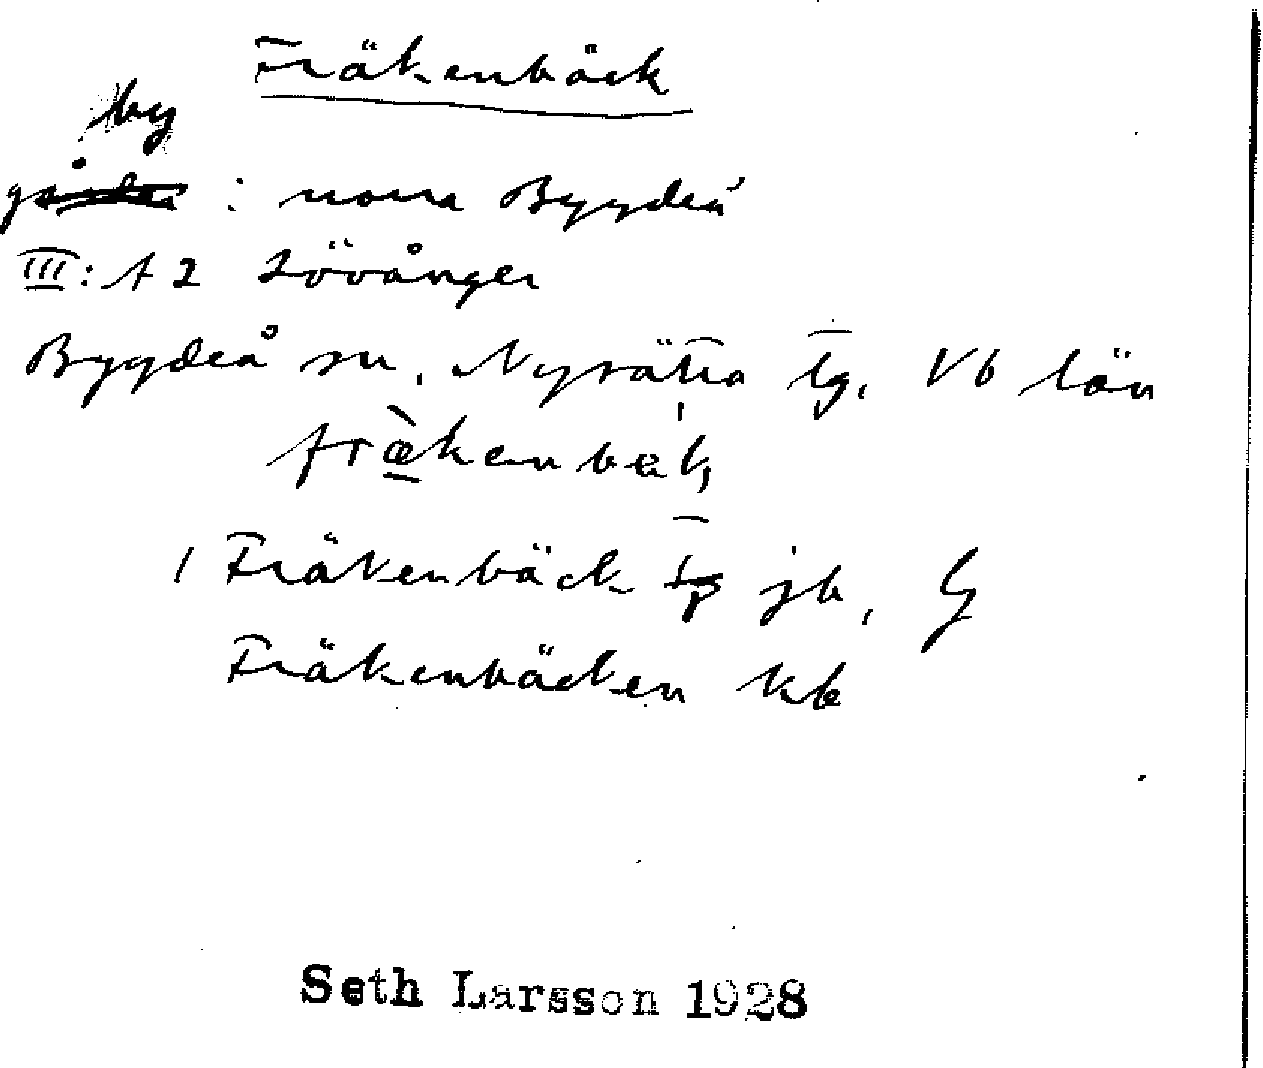 Fräkenbäck
by
gårdar : norra Bygdeå
III: A 2 Lövånger
Bygdeå sn, Nysätra tg, Vb län
fræ̀kenbek,
1 Fräkenbäck jb, G
Fräkenbäcken kb
Seth Larsson 1928